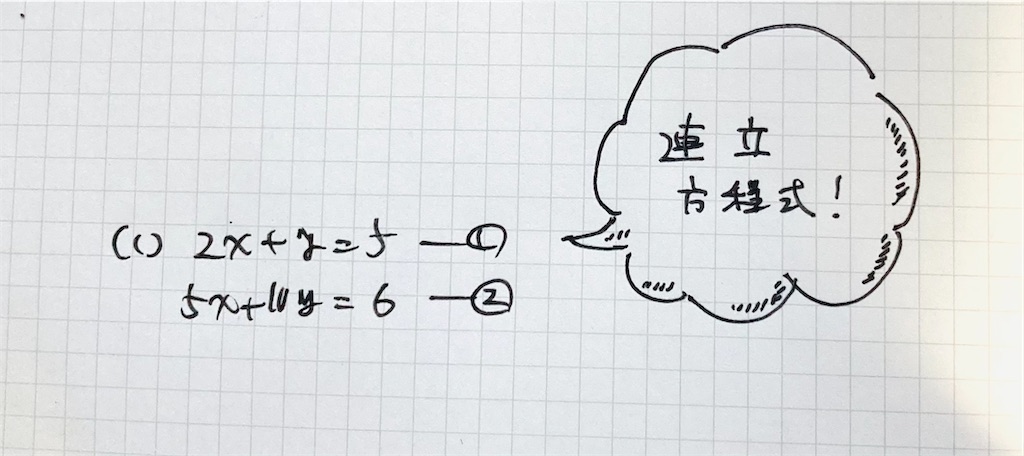 (1) 2x+y=5 ―①
5x+10y=6 ―②
連立
方程式!